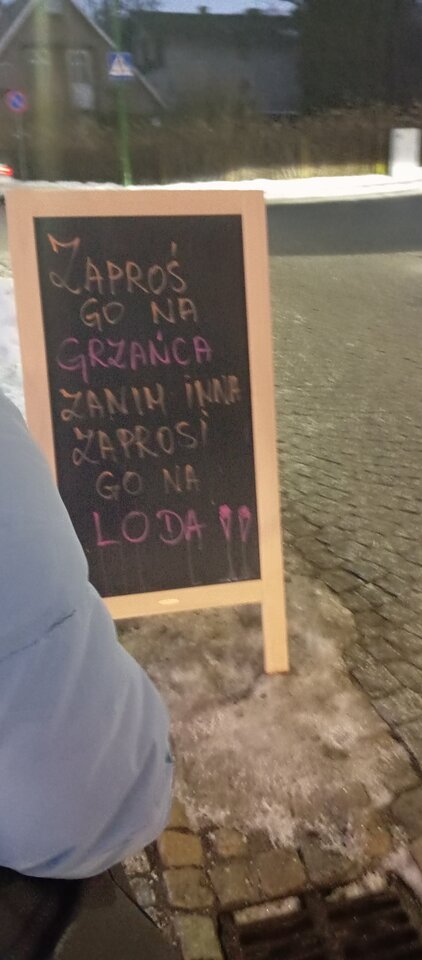 ZAPROŚ
GO NA
GRZAŃCA
ZANIM INNA
ZAPROSI
GO NA
LODA